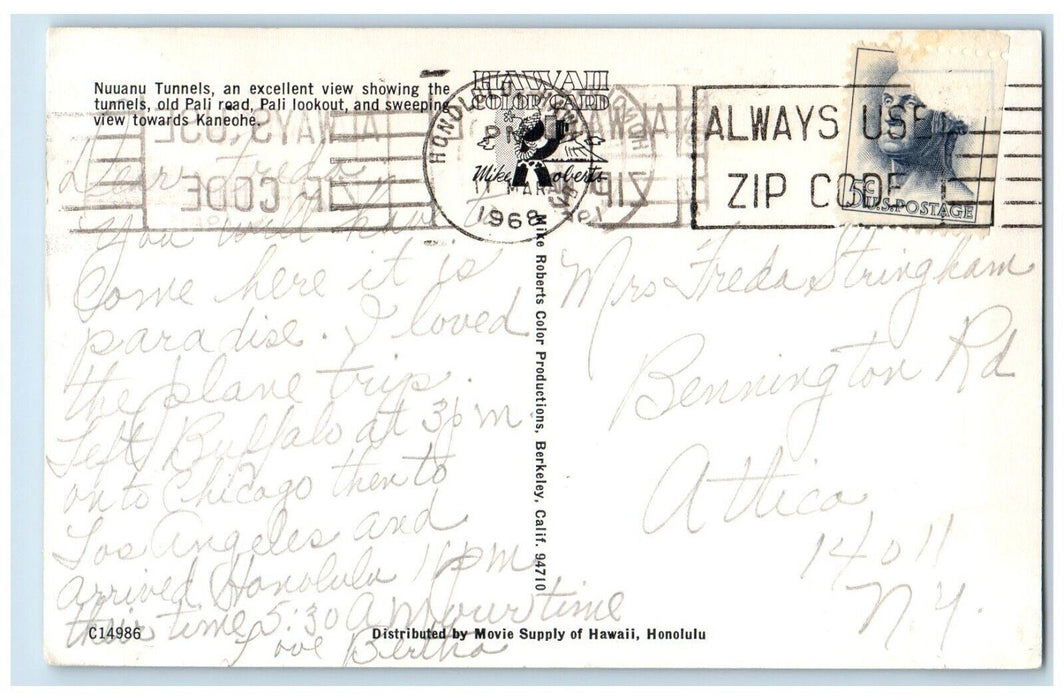 Nuuanu Tunnels, an excellent view showing the
tunnels, old Pali road, Pali lookout, and sweeping
view towards Kaneohe.
HAWAII
COLOR CARD
Mike Roberts
HONOLULU
PM
MAR
1968
ALWAYS USE
ZIP CODE
5¢
U.S. POSTAGE
Dear Freda
You will have to
Come here it is
paradise. I loved
the plane trip.
Left Buffalo at 3 pm.
on to Chicago then to
Los Angeles and
arrived Honolulu 11 pm
their time 5:30 AM our time
Love Bertha
Mike Roberts Color Productions, Berkeley, Calif. 94710
Mrs Freda Stringham
Bennington Rd
Attica
14011
N.Y.
C14986
Distributed by Movie Supply of Hawaii, Honolulu